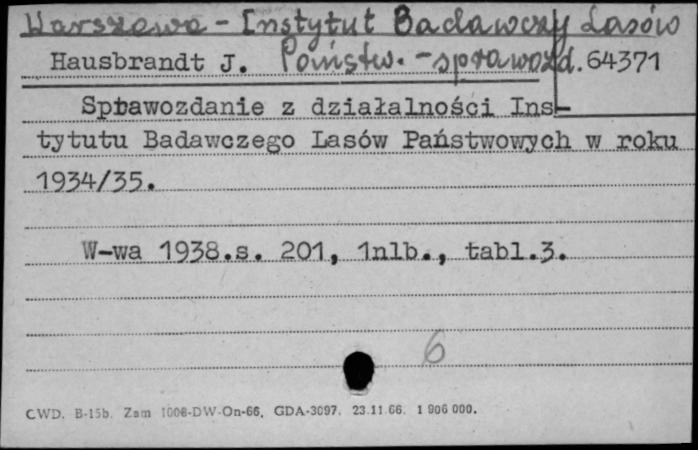 Warszawa - Instytut Badawczy Lasów
Hausbrandt J. Państw. - sprawozd. 64371
Sprawozdanie z działalności Ins-
tytutu Badawczego Lasów Państwowych w roku
1934/35.
W-wa 1938.s. 201, 1nlb., tabl.3.
6
CWD. B-15b. Zam 1006-DW-On-66, GDA-3097. 23.11.66. 1 906 000.